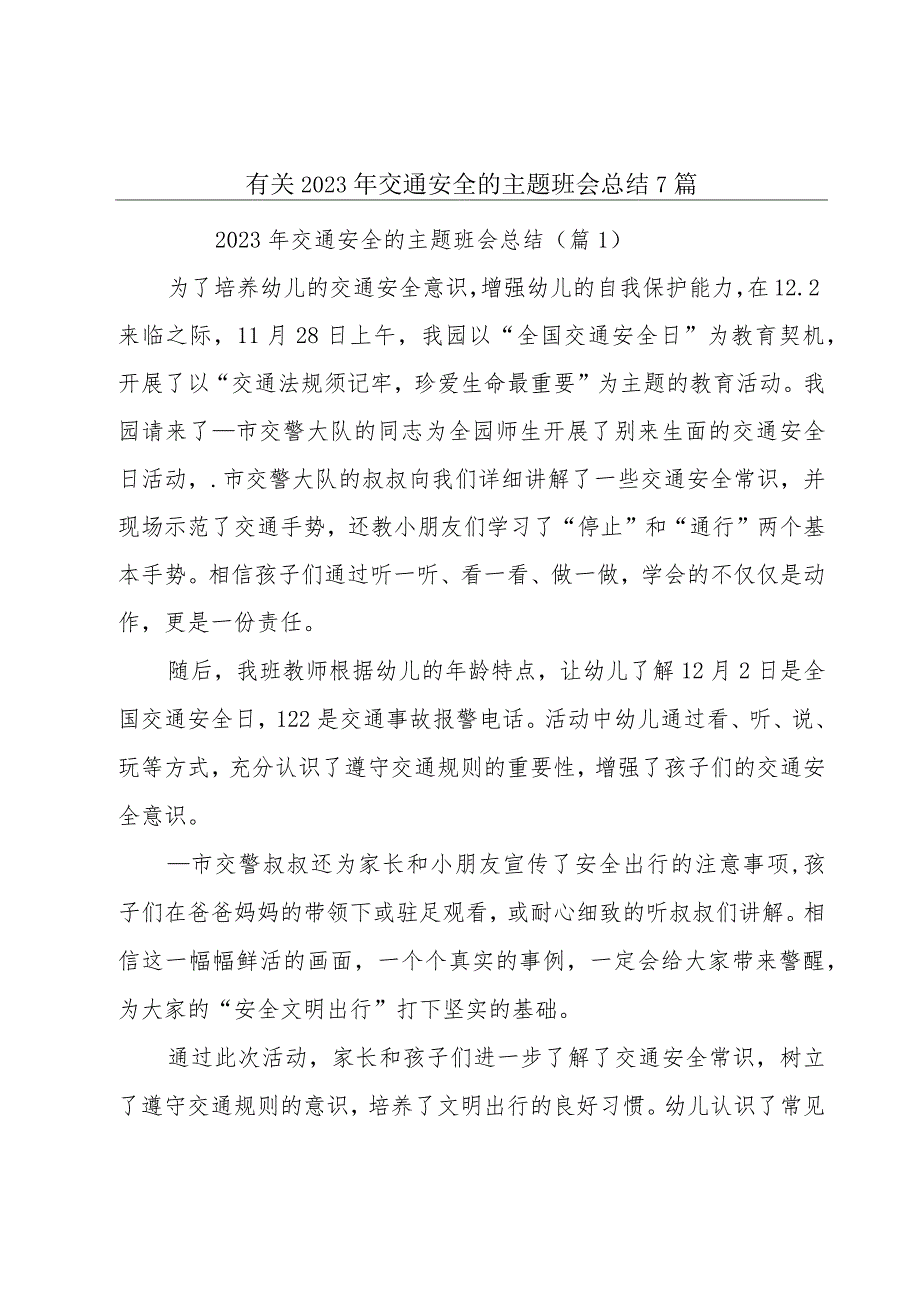 有关 2023 年交通安全的主题班会总结 7 篇
2023 年交通安全的主题班会总结（篇 1）
为了培养幼儿的交通安全意识,增强幼儿的自我保护能力,在 12.2
来临之际，11 月 28 日上午，我园以“全国交通安全日”为教育契机，
开展了以“交通法规须记牢，珍爱生命最重要”为主题的教育活动。我
园请来了—市交警大队的同志为全园师生开展了别来生面的交通安全
日活动，.市交警大队的叔叔向我们详细讲解了一些交通安全常识，并
现场示范了交通手势，还教小朋友们学习了“停止”和“通行”两个基
本手势。相信孩子们通过听一听、看一看、做一做，学会的不仅仅是动
作，更是一份责任。
随后，我班教师根据幼儿的年龄特点，让幼儿了解 12 月 2 日是全
国交通安全日，122 是交通事故报警电话。活动中幼儿通过看、听、说、
玩等方式，充分认识了遵守交通规则的重要性，增强了孩子们的交通安
全意识。
—市交警叔叔还为家长和小朋友宣传了安全出行的注意事项,孩
子们在爸爸妈妈的带领下或驻足观看，或耐心细致的听叔叔们讲解。相
信这一幅幅鲜活的画面，一个个真实的事例，一定会给大家带来警醒，
为大家的“安全文明出行”打下坚实的基础。
通过此次活动，家长和孩子们进一步了解了交通安全常识，树立
了遵守交通规则的意识，培养了文明出行的良好习惯。幼儿认识了常见